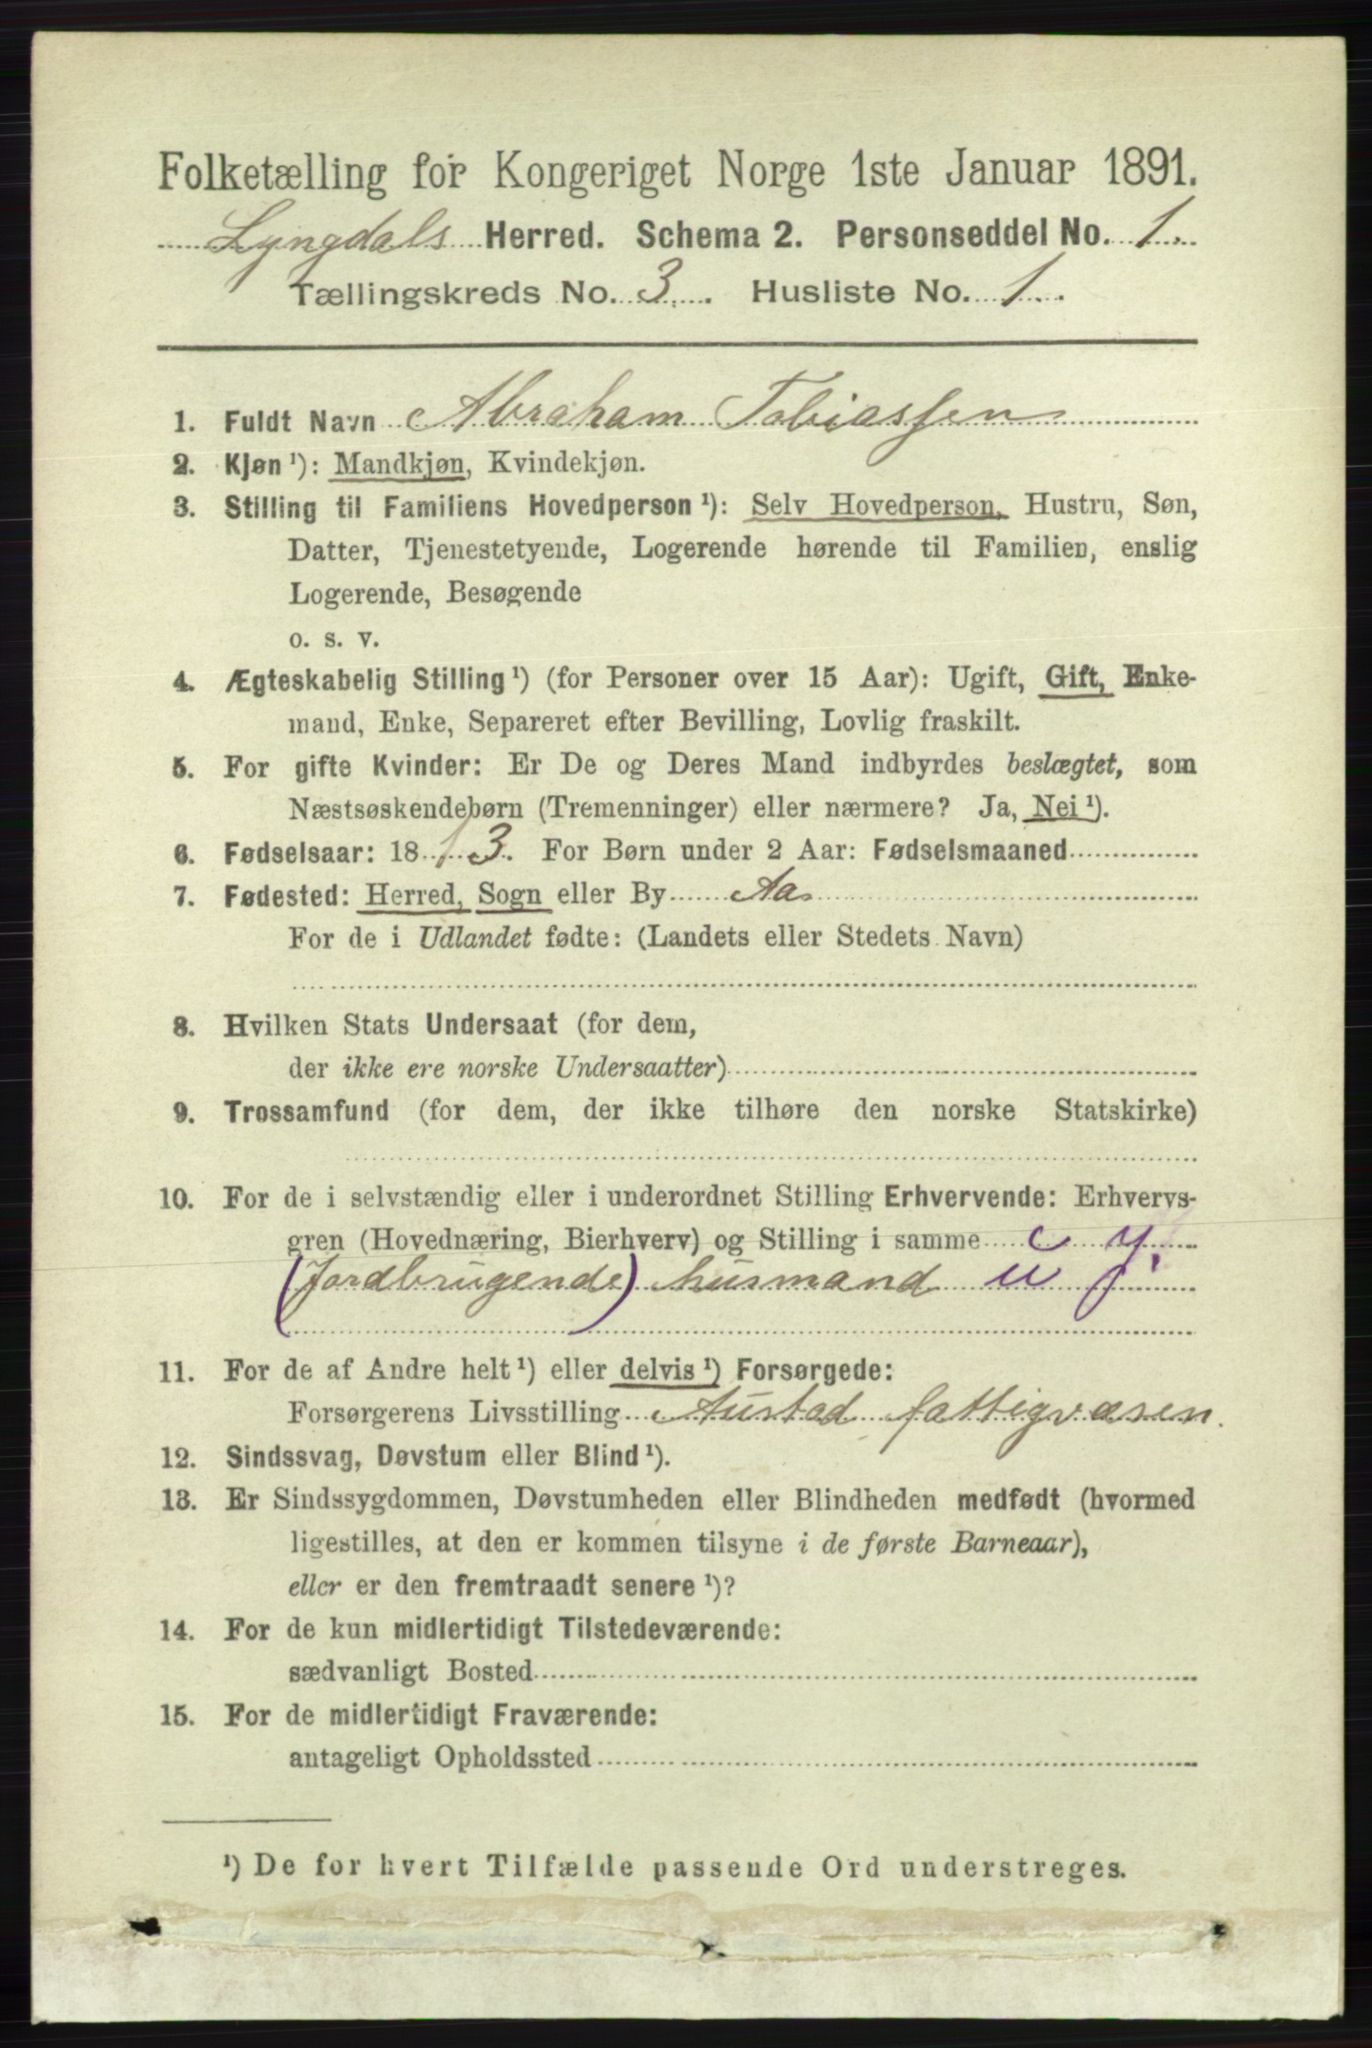 Folketælling for Kongeriget Norge 1ste Januar 1891.
Lyngdals Herred. Schema 2. Personseddel No. 1.
Tællingskreds No. 3. Husliste No. 1.
1. Fuldt Navn Abraham Tobiassen
2. Kjøn ¹): Mandkjøn, Kvindekjøn.
3. Stilling til Familiens Hovedperson ¹): Selv Hovedperson, Hustru, Søn,
Datter, Tjenestetyende, Logerende hørende til Familien, enslig
Logerende, Besøgende
o. s. v.
4. Ægteskabelig Stilling ¹) (for Personer over 15 Aar): Ugift, Gift, Enke-
mand, Enke, Separeret efter Bevilling, Lovlig fraskilt.
5. For gifte Kvinder: Er De og Deres Mand indbyrdes beslægtet, som
Næstsøskendebørn (Tremenninger) eller nærmere? Ja, Nei ¹).
6. Fødselsaar: 1813. For Børn under 2 Aar: Fødselsmaaned
7. Fødested: Herred, Sogn eller By Aa
For de i Udlandet fødte: (Landets eller Stedets Navn)
8. Hvilken Stats Undersaat (for dem,
der ikke ere norske Undersaatter)
9. Trossamfund (for dem, der ikke tilhøre den norske Statskirke)
10. For de i selvstændig eller i underordnet Stilling Erhvervende: Erhvervs-
gren (Hovednæring, Bierhverv) og Stilling i samme c y.
(Jordbrugende) husmand u j.
11. For de af Andre helt ¹) eller delvis ¹) Forsørgede:
Forsørgerens Livsstilling Austad fattigvæsen.
12. Sindssvag, Døvstum eller Blind ¹).
13. Er Sindssygdommen, Døvstumheden eller Blindheden medfødt (hvormed
ligestilles, at den er kommen tilsyne i de første Barneaar),
eller er den fremtraadt senere ¹)?
14. For de kun midlertidigt Tilstedeværende:
sædvanligt Bosted
15. For de midlertidigt Fraværende:
antageligt Opholdssted
¹) De for hvert Tilfælde passende Ord understreges.